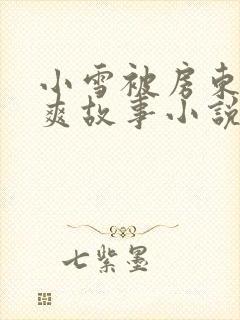 小雪被房东
爽故事小说
七紫墨